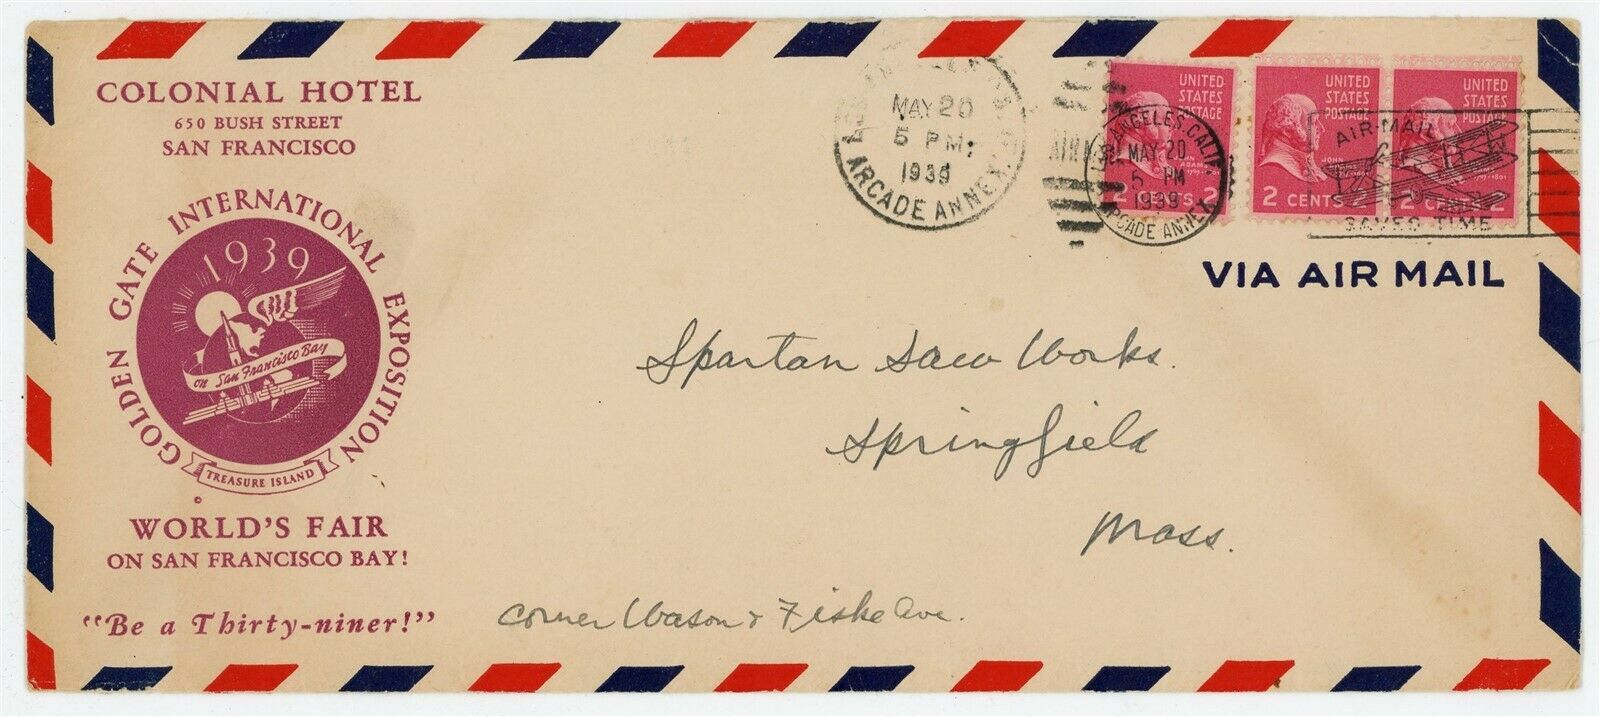 COLONIAL HOTEL
650 BUSH STREET
SAN FRANCISCO
GOLDEN GATE INTERNATIONAL EXPOSITION
1939
on San Francisco Bay
TREASURE ISLAND
©
WORLD'S FAIR
ON SAN FRANCISCO BAY!
"Be a Thirty-niner!"
MAY 20
5 PM
1939
ARCADE ANNEX
LOS ANGELES, CALIF.
MAY 20
5 PM
1939
ARCADE ANNEX
UNITED
STATES
POSTAGE
2 CENTS 2
UNITED
STATES
POSTAGE
JOHN
ADAMS
2 CENTS
UNITED
STATES
POSTAGE
1797-1801
2 CENTS 2
AIR-MAIL
SAVES TIME
VIA AIR MAIL
Spartan Saw Works.
Springfield
Mass.
Corner Wason & Fiske Ave.